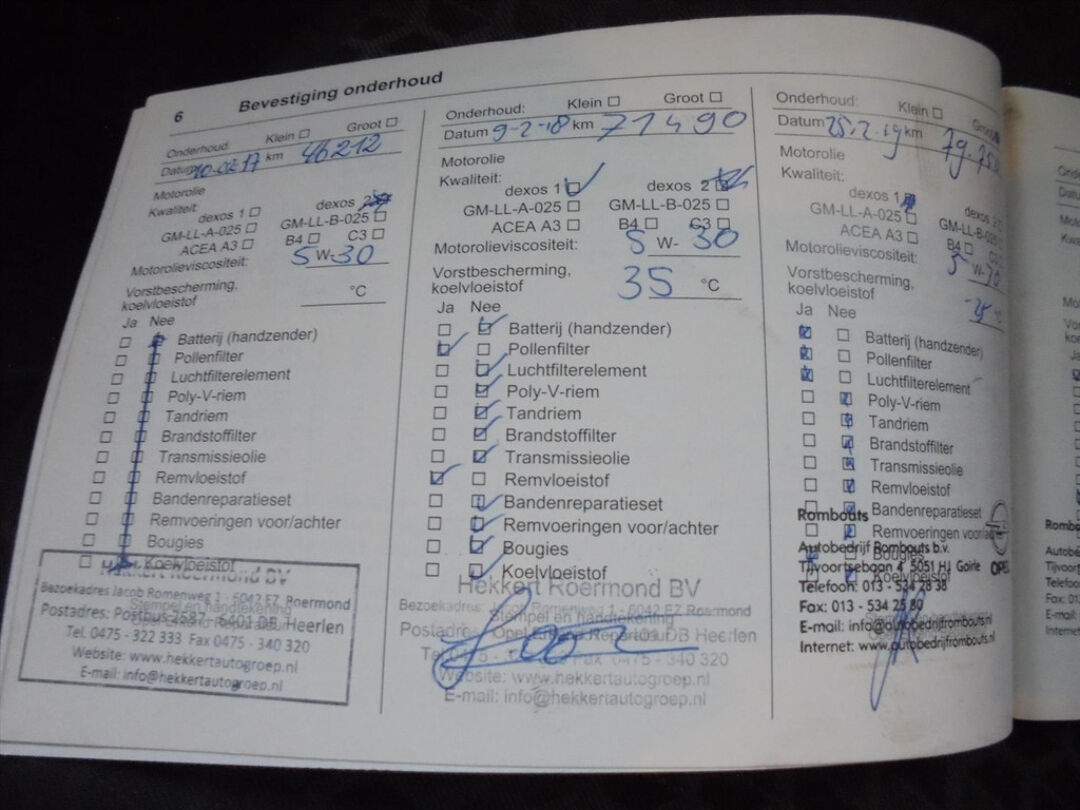 6 Bevestiging onderhoud
Onderhoud: Klein Groot
Datum 10-02-17 km 46212
Motorolie
Kwaliteit:
dexos 1 dexos 2
GM-LL-A-025 GM-LL-B-025
ACEA A3 B4 C3
Motorolieviscositeit: 5 W-30
Vorstbescherming,
koelvloeistof °C
Ja Nee
Batterij (handzender)
Pollenfilter
Luchtfilterelement
Poly-V-riem
Tandriem
Brandstoffilter
Transmissieolie
Remvloeistof
Bandenreparatieset
Remvoeringen voor/achter
Bougies
Koelvloeistof
Hekkert Roermond BV
Bezoekadres Jacob Romenweg 1 - 6042 EZ Roermond
Stempel en handtekening
Postadres: Postbus 2587 - 6401 DB Heerlen
Tel. 0475 - 322 333 Fax 0475 - 340 320
Website: www.hekkertautogroep.nl
E-mail: info@hekkertautogroep.nl
Onderhoud: Klein Groot
Datum 9-2-18 km 71490
Motorolie
Kwaliteit:
dexos 1 dexos 2
GM-LL-A-025 GM-LL-B-025
ACEA A3 B4 C3
Motorolieviscositeit: 5 W-30
Vorstbescherming,
koelvloeistof 35 °C
Ja Nee
Batterij (handzender)
Pollenfilter
Luchtfilterelement
Poly-V-riem
Tandriem
Brandstoffilter
Transmissieolie
Remvloeistof
Bandenreparatieset
Remvoeringen voor/achter
Bougies
Koelvloeistof
Hekkert Roermond BV
Bezoekadres: Jacob Romenweg 1 - 6042 EZ Roermond
Stempel en handtekening
Postadres: DB Heerlen
Opel Erkend Reparateur
Tel 0475 - Fax 0475 - 340 320
Website: www.hekkertautogroep.nl
E-mail: info@hekkertautogroep.nl
Onderhoud: Klein Groot
Datum 25-2-19 km
Motorolie
Kwaliteit:
dexos 1 dexos 2
GM-LL-A-025 GM-LL-B-025
ACEA A3 B4 C3
Motorolieviscositeit: 5 W-
Vorstbescherming,
koelvloeistof °C
Ja Nee
Batterij (handzender)
Pollenfilter
Luchtfilterelement
Poly-V-riem
Tandriem
Brandstoffilter
Transmissieolie
Remvloeistof
Bandenreparatieset
Remvoeringen
Bougies
Koelvloeistof
Rombouts
Autobedrijf Rombouts b.v.
Tijvoortsebaan 4 5051 HJ Goirle OPEL
Telefoon: 013 - 534 28 38
Fax: 013 - 534 25 80
E-mail: info@autobedrijfrombouts.nl
Internet: www.autobedrijfrombouts.nl